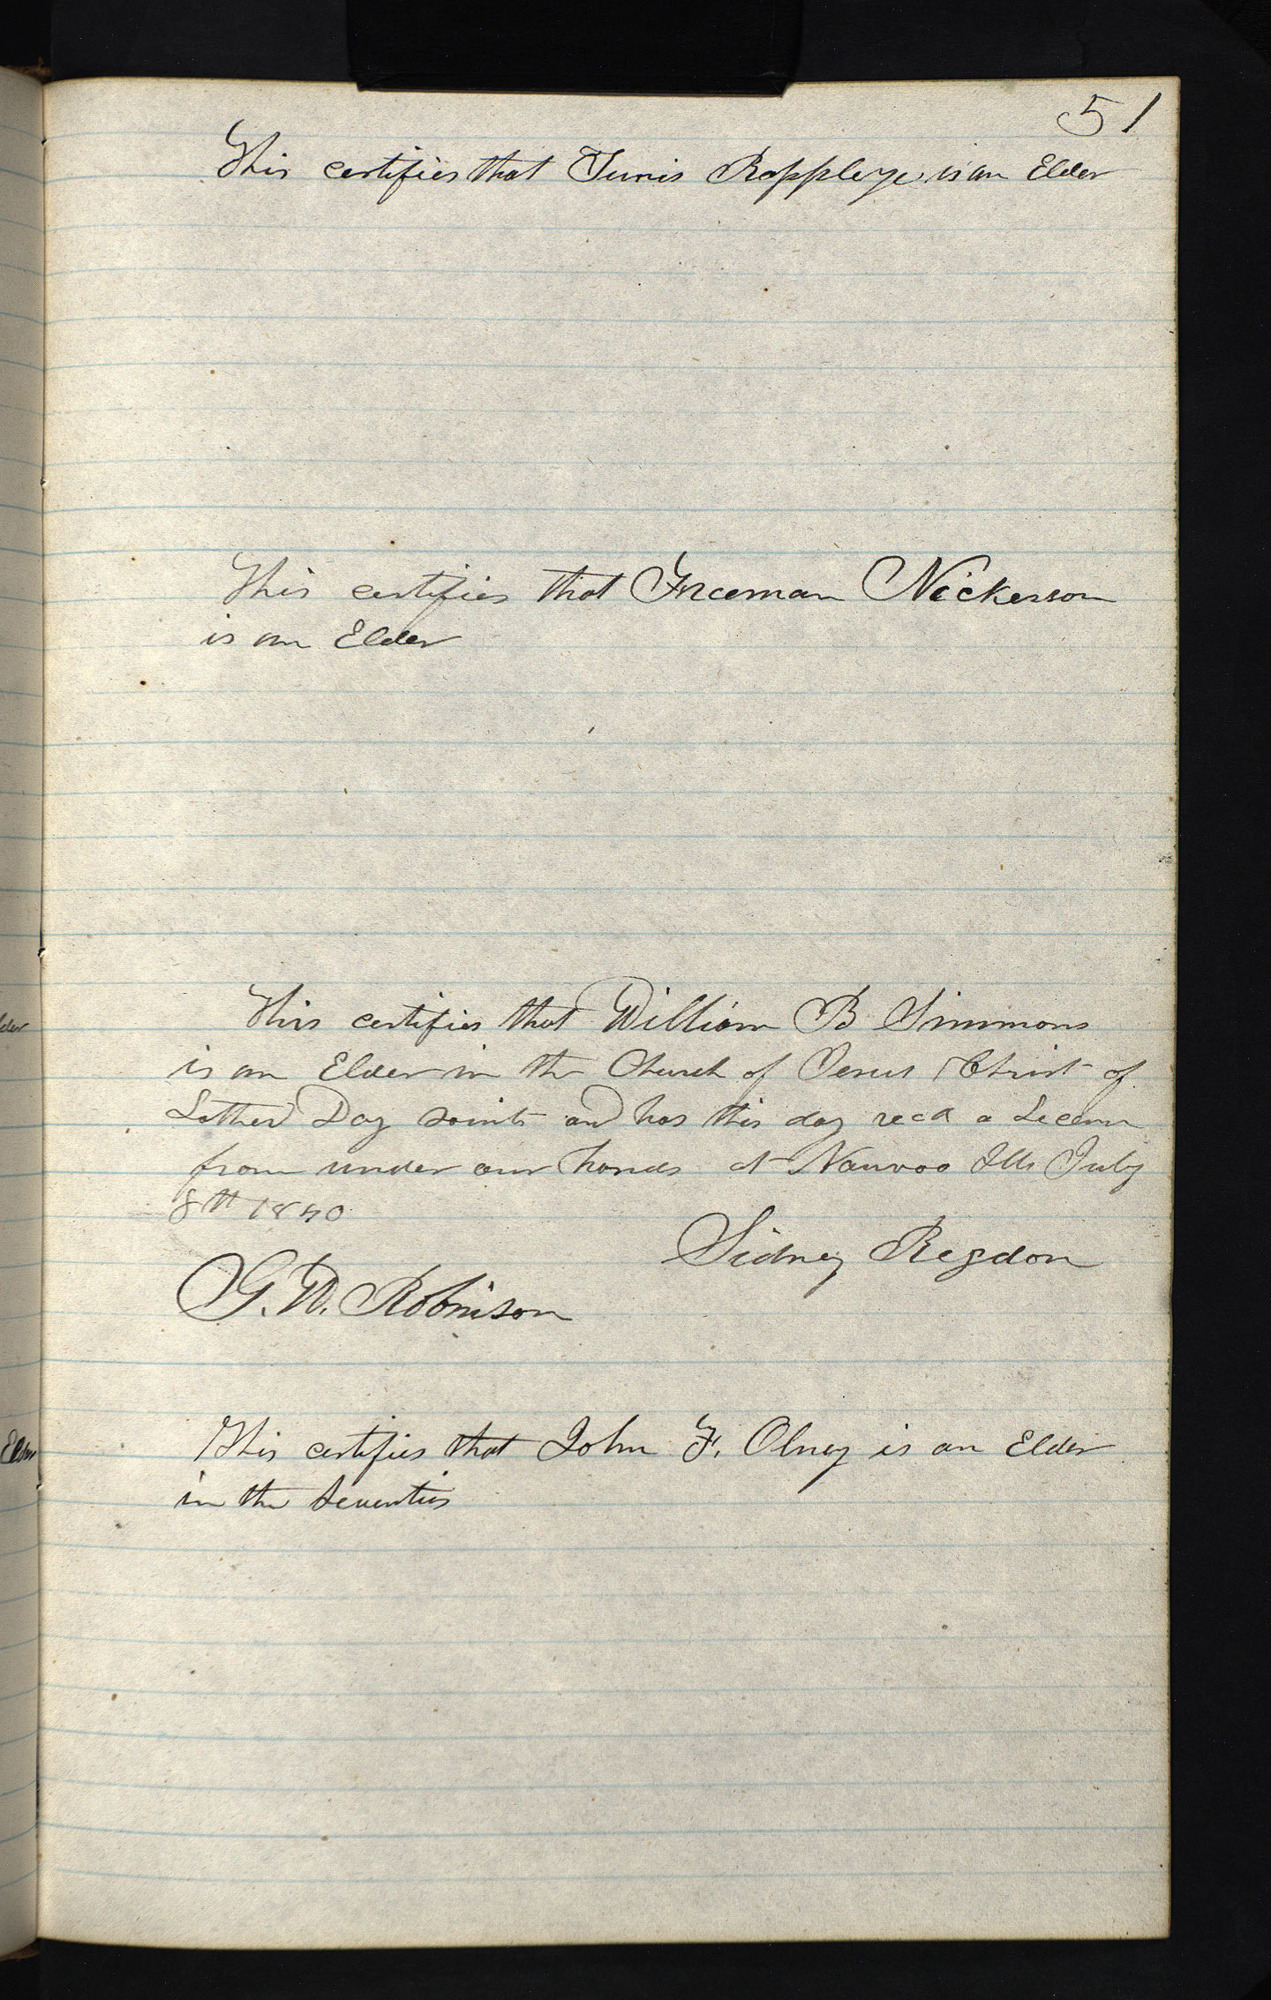 51
This certifies that Tunis Rappleye is an Elder
This certifies that Freeman Nickerson
is an Elder
This certifies that William B Simmons
is an Elder in the Church of Jesus Christ of
Latter Day saints and has this day recd a Licenn
from under our hands at Nauvoo Ills July
8th 1840
Sidney Regdon
G. W. Robinson
This certifies that John F. Olney is an Elder
in the Seventies